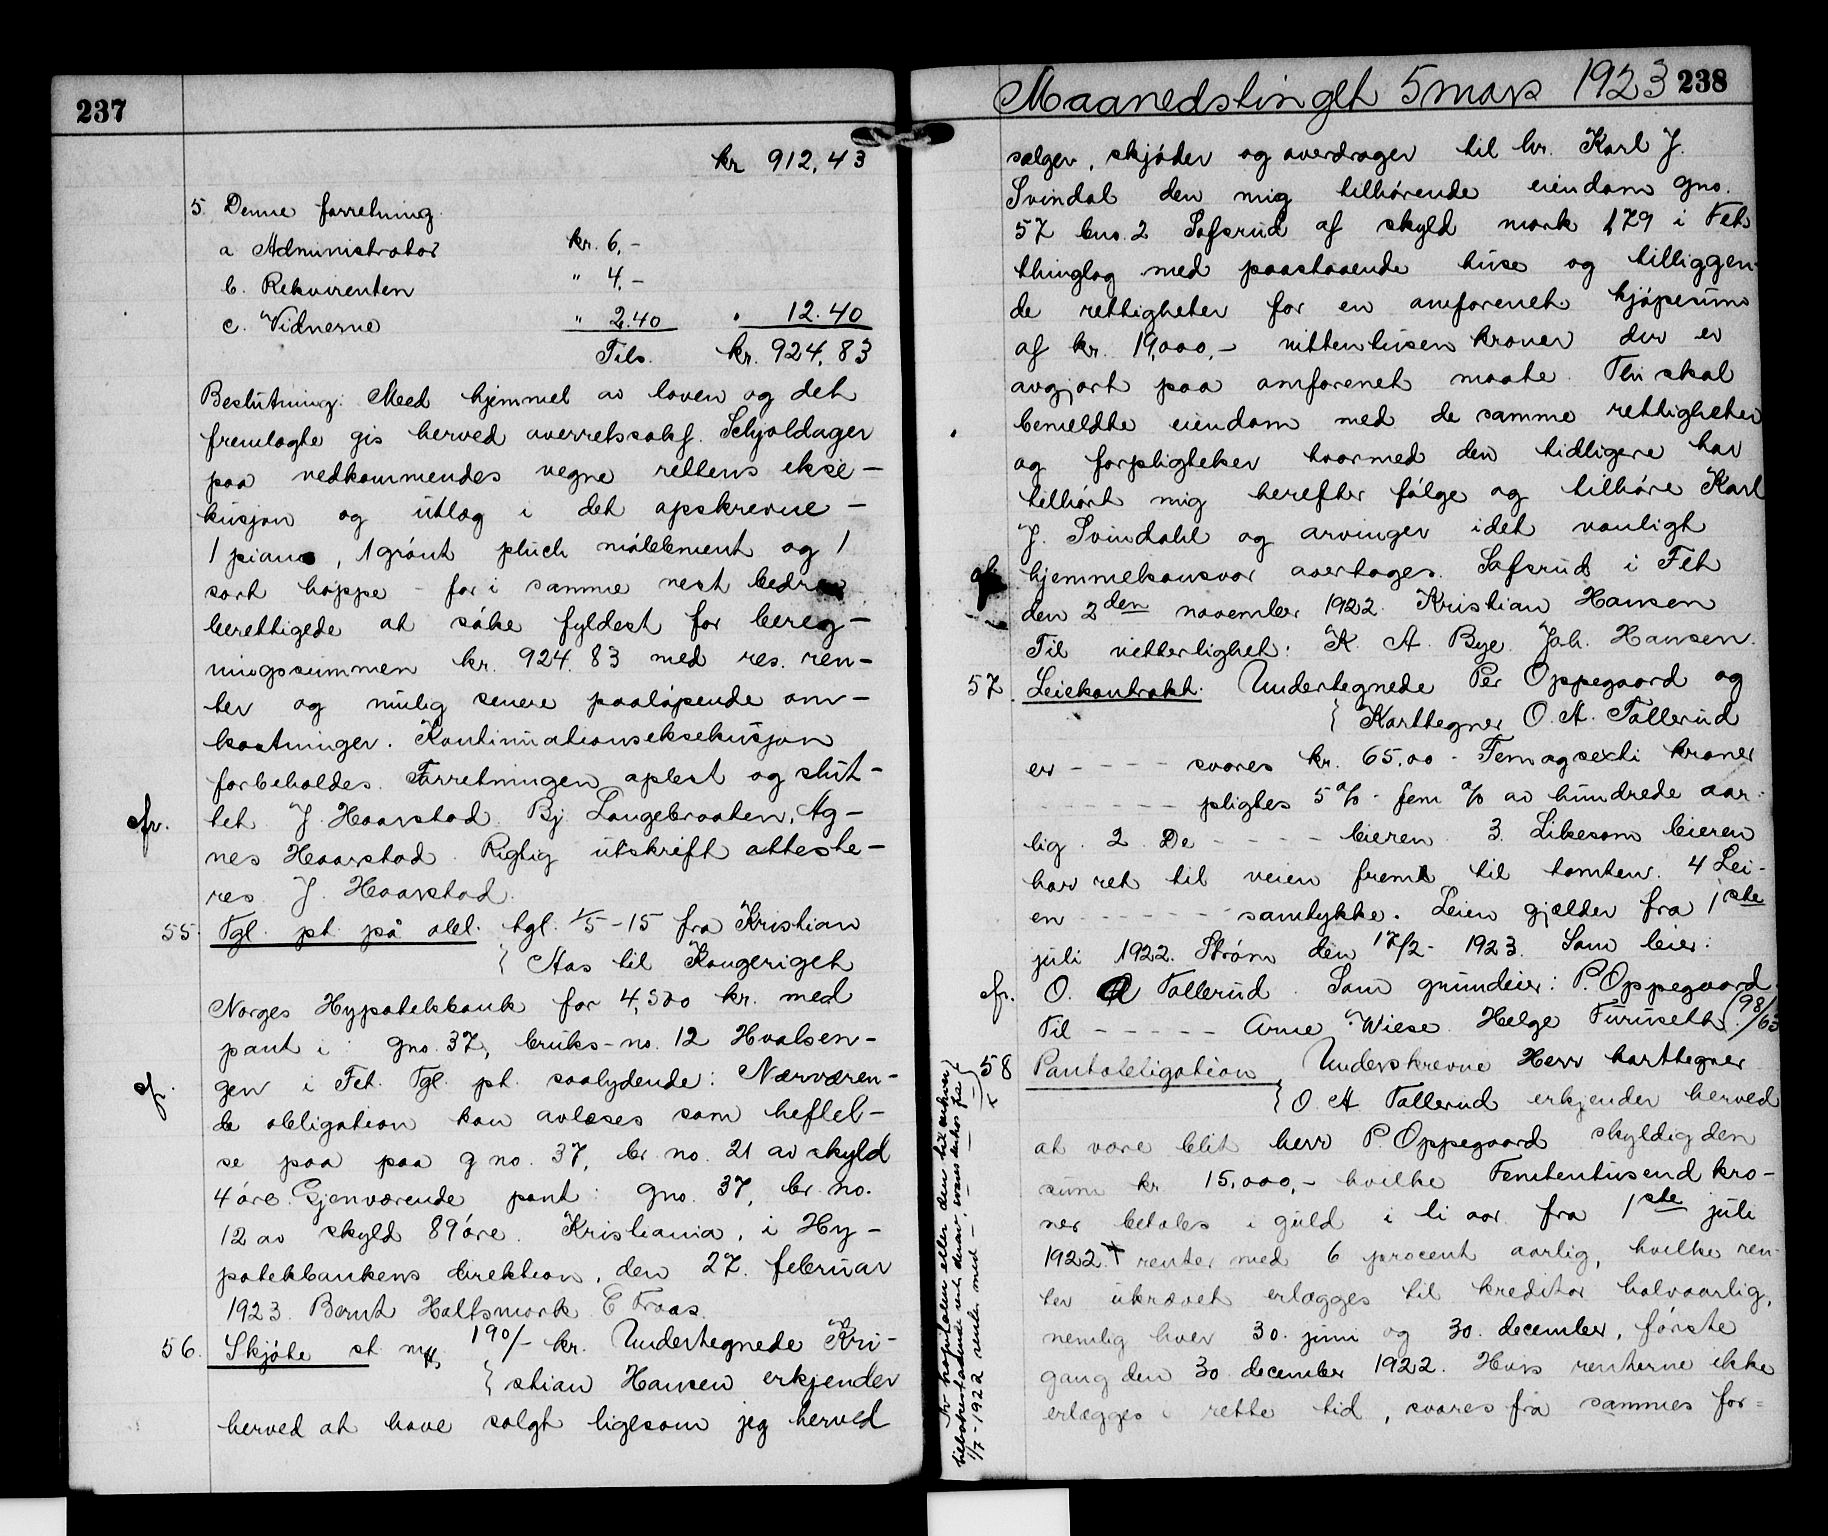 237
kr 912,43
5. Denne forretning.
a Administrator kr. 6,-
b. Rekvirenten " 4,-
c. Vidnerne " 2.40 " 12.40
Tils. kr. 924,83
Beslutning: Med hjemmel av loven og det
fremlagte gis herved overretssakf. Schjoldager
paa vedkommendes vegne rettens ekse-
kusjon og utlæg i det opskrevne -
1 piano, 1 grønt plüch møblement og 1
sort hoppe - for i samme nest bedre
berettigede at søke fyldest for bereg-
ningssummen kr. 924.83 med res. ren-
ter og mulig senere paaløpende om-
kostninger. Kontinuationseksekusjon
forbeholdes. Forretningen oplest og slut-
cfr. tet J. Haarstad. Bj Langebraaten, Ag-
nes Haarstad. Rigtig utskrift atteste-
res J. Haarstad.
55. Tgl. pt. på obl. tgl. 1/5-15 fra Kristian
Aas til Kongeriget
Norges Hypotekbank for 4,500 kr. med
pant i: gno. 37, bruks-no. 12 Hvalsen-
cfr. gen i Fet. Tgl. pt. saalydende: Nærværen-
de obligation kan avløses som heftel-
se paa paa g no. 37, br. no. 21 av skyld
4 øre. Gjenværende pant: gno. 37, br. no.
12 av skyld 89 øre. Kristiania, i Hy-
potekbankens direktion, den 27. februar
1923. Bernt Holtsmark. C Traas.
56. Skjøte st. m 190/- kr. Undertegnede Kri-
stian Hansen erkjender
herved at have solgt ligesom jeg herved
Maanedstinget 5 mars 1923 238
sælger, skjøter og overdrager til hr. Karl J.
Svindal den mig tilhørende eiendom gno.
57 bno. 2 Tofsrud af skyld mark 1,79 i Fet
thinglag med paastaaende huse og tilliggen-
de rettigheter for en omforenet kjøpesum
af kr. 19,000,- nittentusen kroner der er
avgjort paa omforenet maate. Thi skal
bemeldte eiendom med de samme rettigheter
og forpligtelser hvormed den tidligere har
tilhørt mig herefter følge og tilhøre Karl
J. Svindahl og arvinger idet vanligt
hjemmelsansvar overtages. Tofsrud i Fet
den 2den november 1922. Kristian Hansen
Til vitterlighet: K. A. Bye. Joh. Hansen.
57. Leiekontrakt. Undertegnede Per Oppegaard og
Karttegner O. A. Tollerud
er - - - - svares kr. 65,00 - Femogsexti kroner
- - - - - - - pligtes 5 % - fem % av hundrede aar-
lig. 2. De - - - - leieren. 3. Likesom leieren
har ret til veien frem til tomten. 4 Lei-
en - - - - - - samtykke. Leien gjælder fra 1ste
juli 1922. Strøm den 17/2 - 1923. Som leier:
cfr. O. A Tollerud. Som grundeier: P. Oppegaard
Til - - - - - Arne Wiese. Helge Furuseth. (98/63
58 Pantobligation Underskrevne Herr karttegner
O. A Tollerud erkjender herved
at være blit herr P. Oppegaard skyldig den
sum kr. 15,000,- hvilke Femtentusend kro-
ner betales i guld i ti aar fra 1ste juli
1922. + renter med 6 procent aarlig, hvilke ren-
ter ukrævet erlægges til kreditor halvaarlig,
nemlig hver 30. juni og 30. december, første
gang den 30 december 1922. Hvis renterne ikke
erlægges i rette tid, svares fra sammes for=
Av kapitalen eller den til enhver
tilbakestaaende rest derav, svares derhos fra
1/7-1922 renter med -